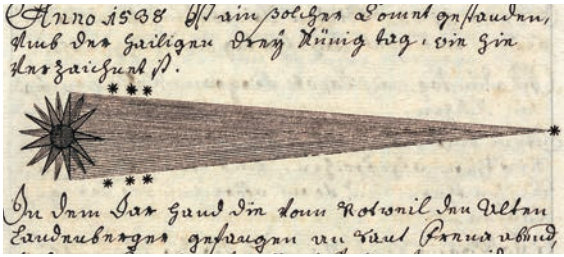 Anno 1538 Ist ain solcher Comet gestanden,
Umb der hailigen drey Künig tag, wie hie
verzaichnet ist.
In dem Jar hand die vonn Rotweil den Alten
Landenberger gefangen an Sant Frena abend,